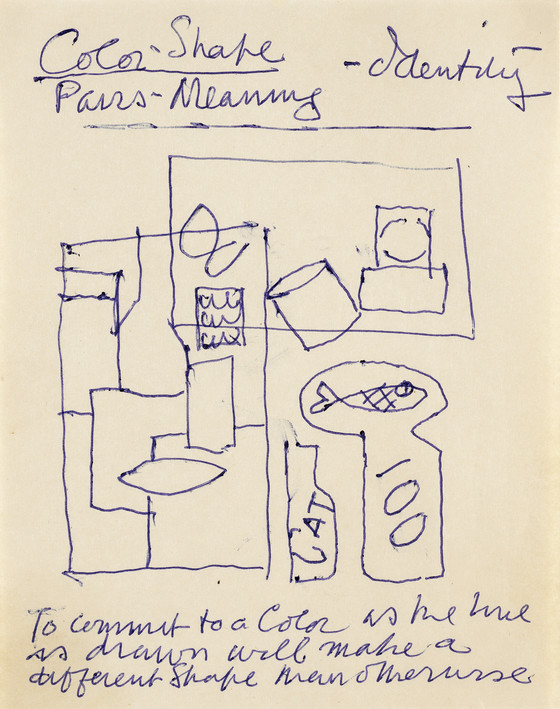 Color-Shape
-Identity
Pairs-Meaning
CAT
100
To commit to a Color as the line
is drawn will make a
different Shape than otherwise